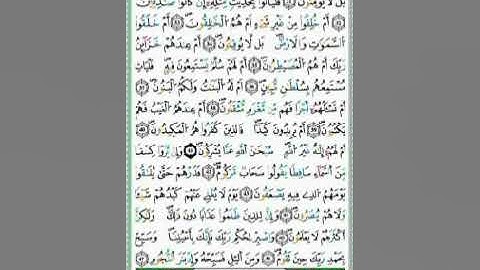 بَل لَّا يُؤْمِنُونَ ۝٣٣ فَلْيَأْتُوا۟ بِحَدِيثٍ مِّثْلِهِۦٓ إِن كَانُوا۟ صَٰدِقِينَ
۝٣٤ أَمْ خُلِقُوا۟ مِنْ غَيْرِ شَىْءٍ أَمْ هُمُ ٱلْخَٰلِقُونَ ۝٣٥ أَمْ خَلَقُوا۟
ٱلسَّمَٰوَٰتِ وَٱلْأَرْضَ ۚ بَل لَّا يُوقِنُونَ ۝٣٦ أَمْ عِندَهُمْ خَزَآئِنُ
رَبِّكَ أَمْ هُمُ ٱلْمُصَۣيْطِرُونَ ۝٣٧ أَمْ لَهُمْ سُلَّمٌ يَسْتَمِعُونَ فِيهِ ۖ فَلْيَأْتِ
مُسْتَمِعُهُم بِسُلْطَٰنٍ مُّبِينٍ ۝٣٨ أَمْ لَهُ ٱلْبَنَٰتُ وَلَكُمُ ٱلْبَنُونَ ۝٣٩
أَمْ تَسْـَٔلُهُمْ أَجْرًا فَهُم مِّن مَّغْرَمٍ مُّثْقَلُونَ ۝٤٠ أَمْ عِندَهُمُ ٱلْغَيْبُ فَهُمْ
يَكْتُبُونَ ۝٤١ أَمْ يُرِيدُونَ كَيْدًا ۖ فَٱلَّذِينَ كَفَرُوا۟ هُمُ ٱلْمَكِيدُونَ ۝٤٢
أَمْ لَهُمْ إِلَٰهٌ غَيْرُ ٱللَّهِ ۚ سُبْحَٰنَ ٱللَّهِ عَمَّا يُشْرِكُونَ ۝٤٣ وَإِن يَرَوْا۟ كِسْفًا
مِّنَ ٱلسَّمَآءِ سَاقِطًا يَقُولُوا۟ سَحَابٌ مَّرْكُومٌ ۝٤٤ فَذَرْهُمْ حَتَّىٰ يُلَٰقُوا۟
يَوْمَهُمُ ٱلَّذِى فِيهِ يُصْعَقُونَ ۝٤٥ يَوْمَ لَا يُغْنِى عَنْهُمْ كَيْدُهُمْ شَيْـًٔا
وَلَا هُمْ يُنصَرُونَ ۝٤٦ وَإِنَّ لِلَّذِينَ ظَلَمُوا۟ عَذَابًا دُونَ ذَٰلِكَ وَلَٰكِنَّ
أَكْثَرَهُمْ لَا يَعْلَمُونَ ۝٤٧ وَٱصْبِرْ لِحُكْمِ رَبِّكَ فَإِنَّكَ بِأَعْيُنِنَا ۖ وَسَبِّحْ
بِحَمْدِ رَبِّكَ حِينَ تَقُومُ ۝٤٨ وَمِنَ ٱلَّيْلِ فَسَبِّحْهُ وَإِدْبَٰرَ ٱلنُّجُومِ ۝٤٩